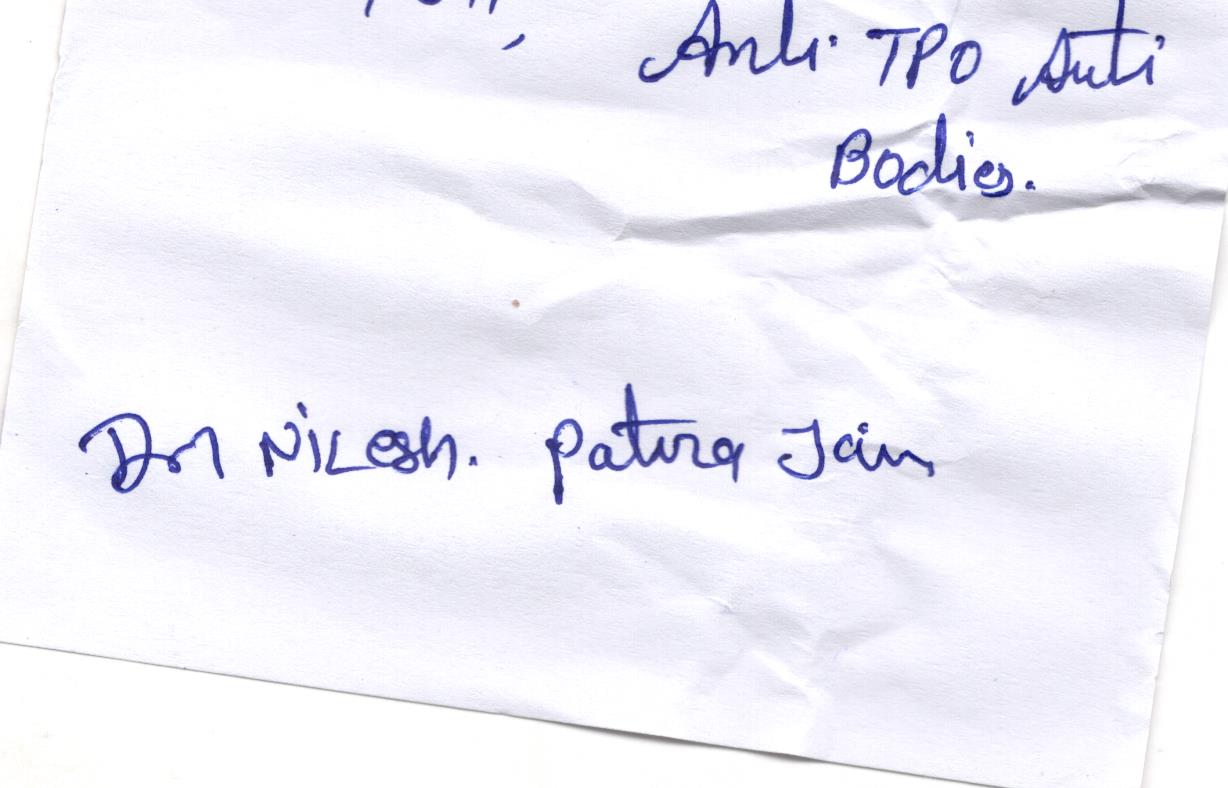 Anti TPO Anti
Bodies.
Dr Nilesh. Patira Jain